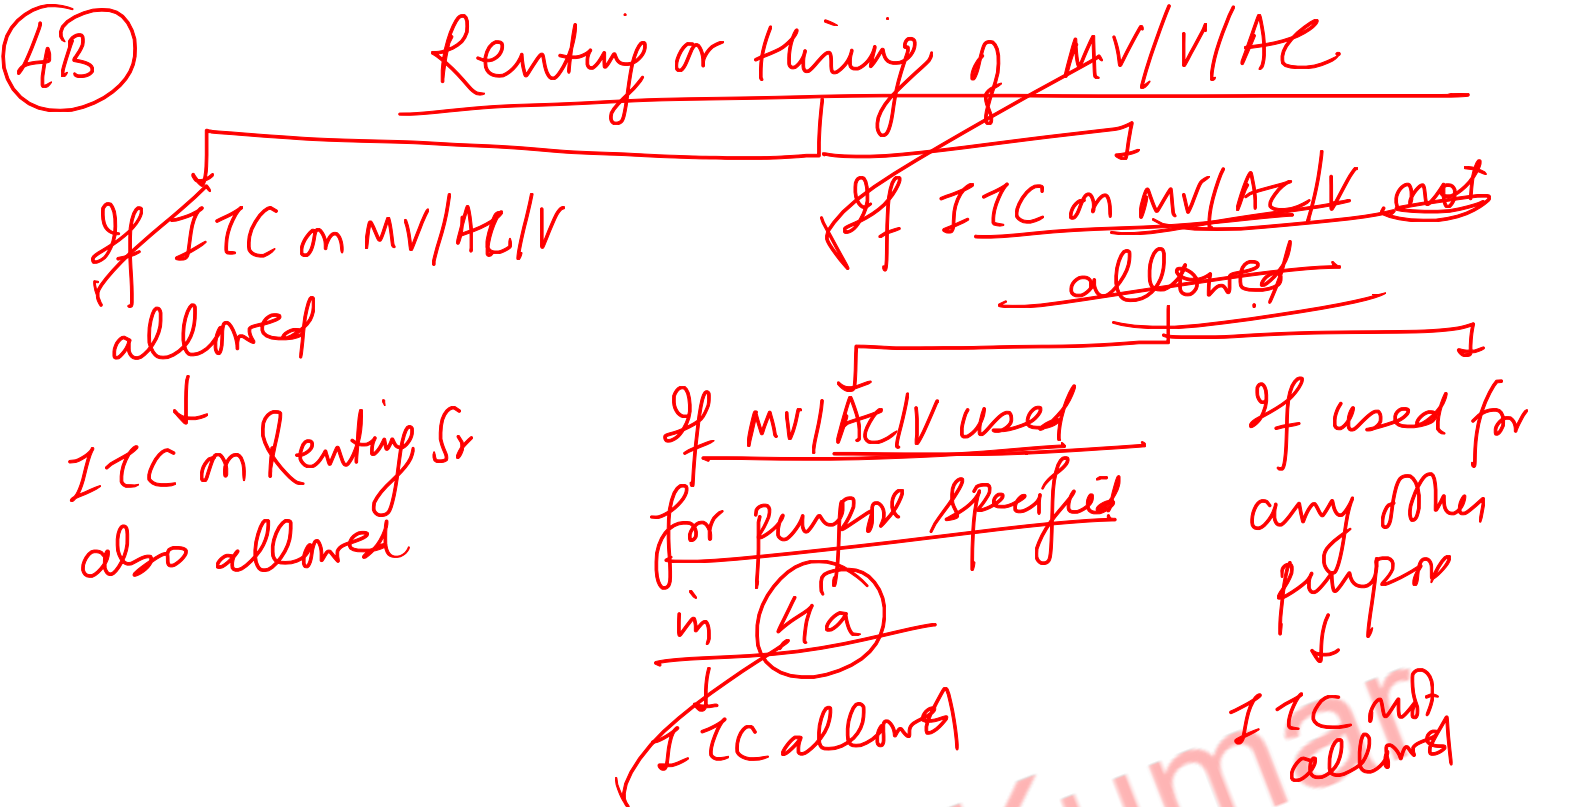 4B
Renting or Hiring of MV/V/AC
If ITC on MV/AC/V
allowed
ITC on Renting Sr
also allowed
If ITC on MV/AC/V not
allowed
If MV/AC/V used
for purpose specified
in 4a
ITC allowed
If used for
any other
purpose
ITC not
allowed
Kumar